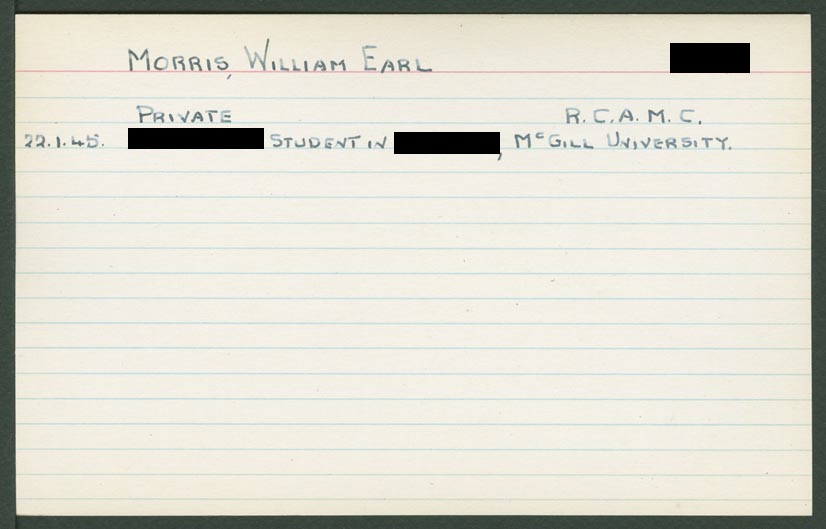 MORRIS, WILLIAM EARL
PRIVATE R.C.A.M.C.
22.1.45. STUDENT IN , McGILL UNIVERSITY.